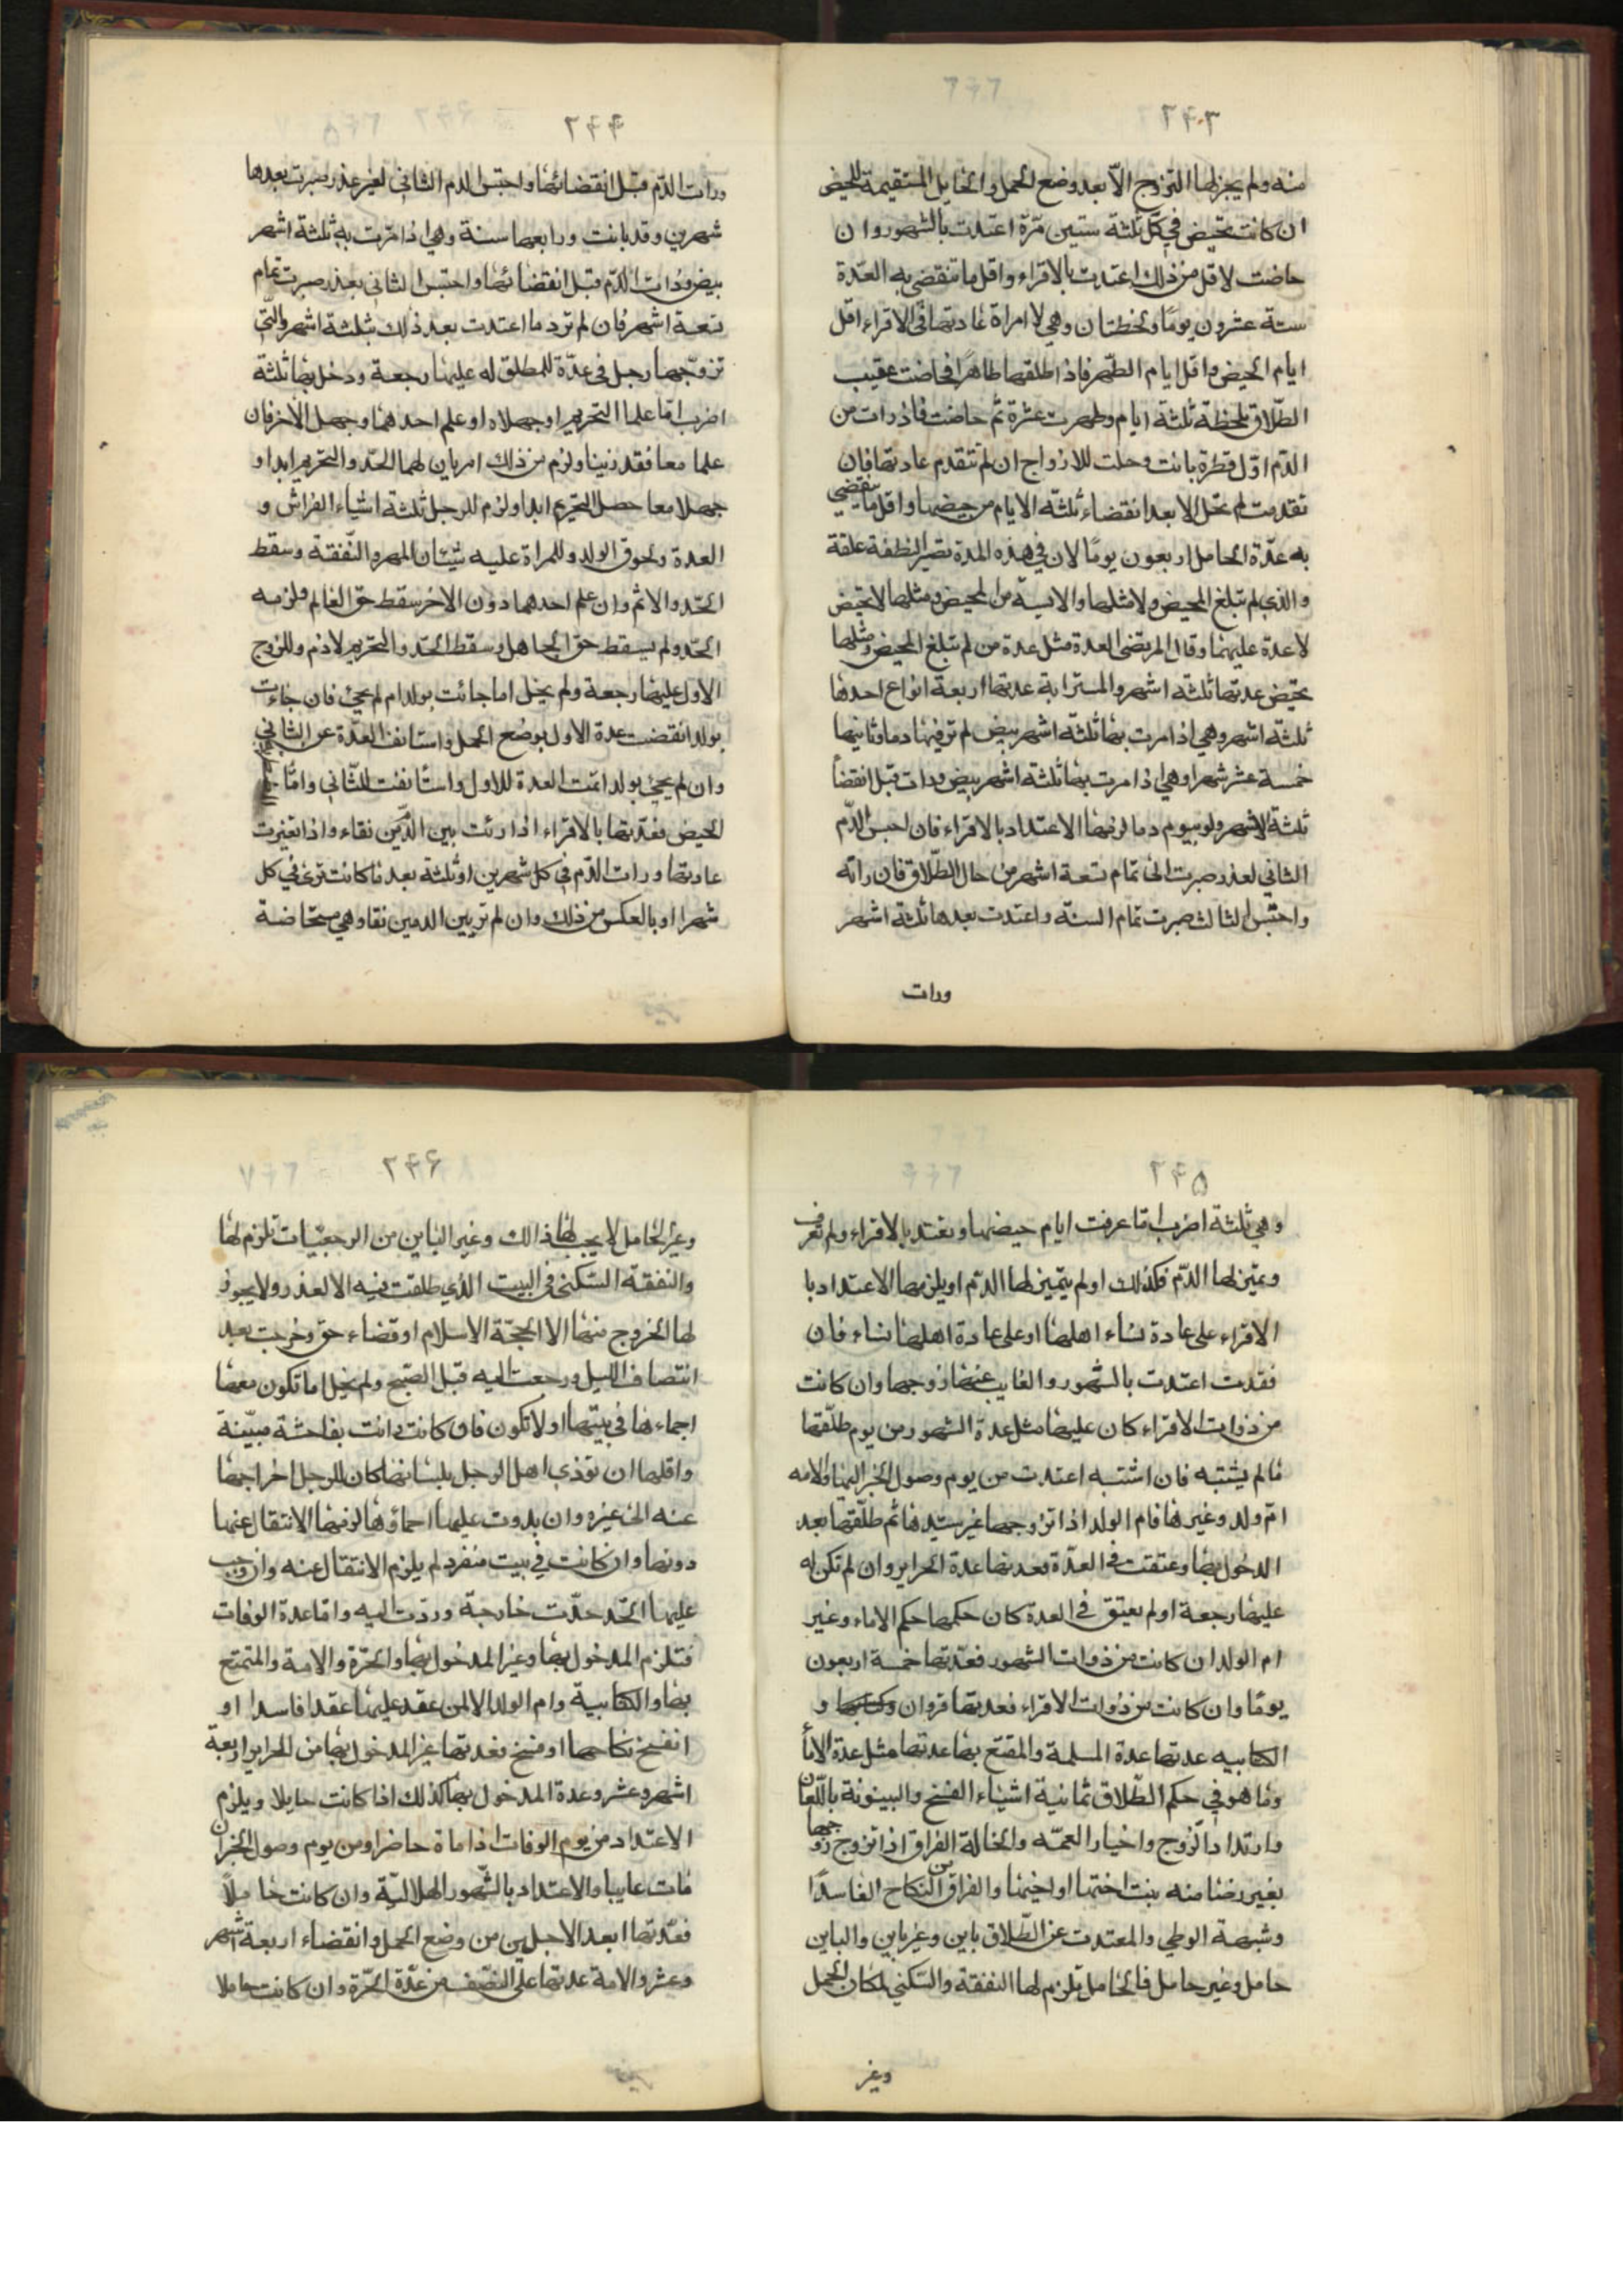 ٢٤٣
منه ولم يجز لها التزوج الاّ بعد وضع الحمل والحايل المستقيمة للحيض
ان كانت تحيض في كل ثلثة ستين مرّة اعتدت بالشهور وان
حاضت لاقل من ذلك اعتدت بالاقراء واقل ما تنقضي به العدّة
ستة عشرون يومًا ولحظتان وهي لامراة عادتها في الاقراء اقل
ايام الحيض واقل ايام الطهر فاذا طلقها طاهرًا فحاضت عقيب
الطلاق بلحظة ثلثة ايام وطهرت عشرة ثم حاضت فاذ رات من
الدّم اوّل قطرة بانت وحلت للازواج ان لم تتقدم عادتها فان
تقدمت لم تحل الا بعد انقضاء ثلثه الايام من حيضها واقل ما ينقضي
به عدّة الحامل اربعون يومًا لان في هذه المدة تصير النطفة علقة
والذي لم تبلغ المحيض ولا مثلها والايسة من المحيض ومثلها لا تحيض
لا عدة عليهما وقال المرتضى العدة مثل عدة من لم تبلغ المحيض ومثلها
تحيض عدتها ثلثه اشهر والمسترابة عدتها اربعة انواع احدها
ثلثه اشهر وهي اذا مرت بها ثلثه اشهر بيض لم تر فيها دما وثانيها
خمسة عشر شهرا وهي اذا مرت بها ثلثة اشهر بيض ورات قبل انقضأ
ثلثة الاشهر ولو بيوم دما لزمها الاعتداد بالاقراء فان احبس الدّم
الثاني لعذر صبرت الى تمام تسعة اشهر من حال الطلاق فان راته
واحتبس الثالث صبرت تمام السنة واعتدت بعدها ثلثة اشهر
ورات
٢٤٤
ورات الدّم قبل انقضائها واحتبس الدم الثاني لغير عذر صبرت بعدها
شهرين وقد بانت ورابعها سنة وهي اذا مرّت به ثلثة اشهر
بيض ورات الدّم قبل انقضائها واحتبس الثاني بعذر صبرت تمام
تسعة اشهر فان لم تر دما اعتدت بعد ذلك بثلثة اشهر والتي
تزوجها رجل في عدّة للمطلق له عليها رجعة ودخل بها ثلثة
اضرب امّا علما التحريم او جهلاه او علم احدهما وجهل الاخر فان
علما معا فقد زنينا ولزم من ذلك امريان لهما الحدّ والتحريم ابدا و
جهلا معا حصل التحريم ابدا ولزم للرجل ثلثة اشياء الفراش و
العدة ولحوق الولد وللمراة عليه شيئان المهر والنّفقة وسقط
الحدّ والاثم وان علم احدهما دون الاخر سقط حق العالم ولزمه
الحدّ ولم يسقط حق الجاهل وسقط الحدّ والتحريم لازم وللزوج
الاول عليها رجعة ولم يخل اما جائت بولد ام لم يجئ فان جاءت
بولد انقضت عدة الاول بوضع الحمل واستانفت العدّة عن الثاني
وان لم يجئ بولد اتمت العدة للاول واستانفت للثّاني وامّا
الحيض فعدّتها بالاقراء اذا رئت بين الدّمين نقاء واذا تغيرت
عادتها ورات الدّم في كل شهرين او ثلثة بعد ما كانت ترى في كل
شهرا او بالعكس من ذلك وان لم تر بين الدمين نقا وهي مستحاضة
٢٤٥
وهي ثلثة اضرب امّا عرفت ايام حيضها وتعتد بالاقراء ولم تعرف
وتميّز لها الدّم فكذلك اولم يتميّز لها الدّم او يلزمها الاعتداد با
الاقراء على عادة نساء اهلها او على عادة اهلها نساء فان
فقدت اعتدت بالشهور والغايب عنها زوجها وان كانت
من ذوات الاقراء كان عليها مثل عدة الشهور من يوم طلّقها
مالم يشتبه فان اشتبه اعتدت من يوم وصول الخبر اليها والامه
امّ ولد وغيرها فام الولد اذا تزوجها غير سيّدها ثم طلّقها بعد
الدخول بها وعتقت في العدّة فعدتها عدة الحراير وان لم تكن له
عليها رجعة اولم يعتق في العدة كان حكمها حكم الاماء وغير
ام الولد ان كانت من ذوات الشهور فعدّتها خمسة اربعون
يومًا وان كانت من ذوات الاقراء فعدتها قروان و
الكتابيه عدتها عدة المسلمة والمتمتع بها عدتها مثل عدة الامأ
وما هو في حكم الطّلاق ثمانية اشياء الفسخ والبينونة باللّعان
وارتداد الزّوج واخيار العمّه والخالة الفراق اذا تزوج زوجها
بغير رضا منه بنت اختها او اخيها والفراق من النكاح الفاسدًا
وشبهة الوطي والمعتدت عن الطّلاق باين وغير باين والباين
حامل وغير حامل فالحامل تلزم لها النفقة والسكنى لمكان الحمل
وغير
٢٤۶
وغير الحامل لا يجب لها ذالك وغير الباين من الرجعيّات تلزم لها
والنفقة السّكنى في البيت الذي طلقت فيه الا لعذر ولا يجوز
لها الخروج منها الا لحجّة الاسلام او قضاء حق وخرجت بعد
انتصاف الليل ورجعت اليه قبل الصّبح ولم يخل اما تكون معها
اجماءها في بيتها او لا تكون فان كانت واتت بفاحشة مبيّنة
واقلها ان توذي اهل الرجل بلسانها كان للرجل اخراجها
عنه الى غيره وان بدوت عليها احماؤها لزمها الانتقال عنها
دونها وان كانت في بيت منفرد لم يلزم الانتقال عنه وان وجب
عليها الحّد حدّت خارجة وردّت اليه وامّا عدة الوفات
فتلزم المدخول بها وغير المدخول بها والحرّة والامة والمتمتع
بها والكتابية وام الولد الا لمن عقد عليها عقدا فاسدا او
انفسخ نكاحها او فسخ فعدتها غير المدخول بها من الحراير اربعة
اشهر وعشر وعدة المدخول بها كذلك اذا كانت حايلا ويلزم
الاعتداد من يوم الوفات اذا ماة حاضرا ومن يوم وصول الخبر ان
مات غايبا والاعتداد بالشّهور الهلاليّة وان كانت حاملاً
فعدّتها ابعد الاجلين من وضع الحمل وانقضاء اربعة اشهر
وعشر والامة عدتها على النصّف من عدّة الحرّة وان كانت حاملا